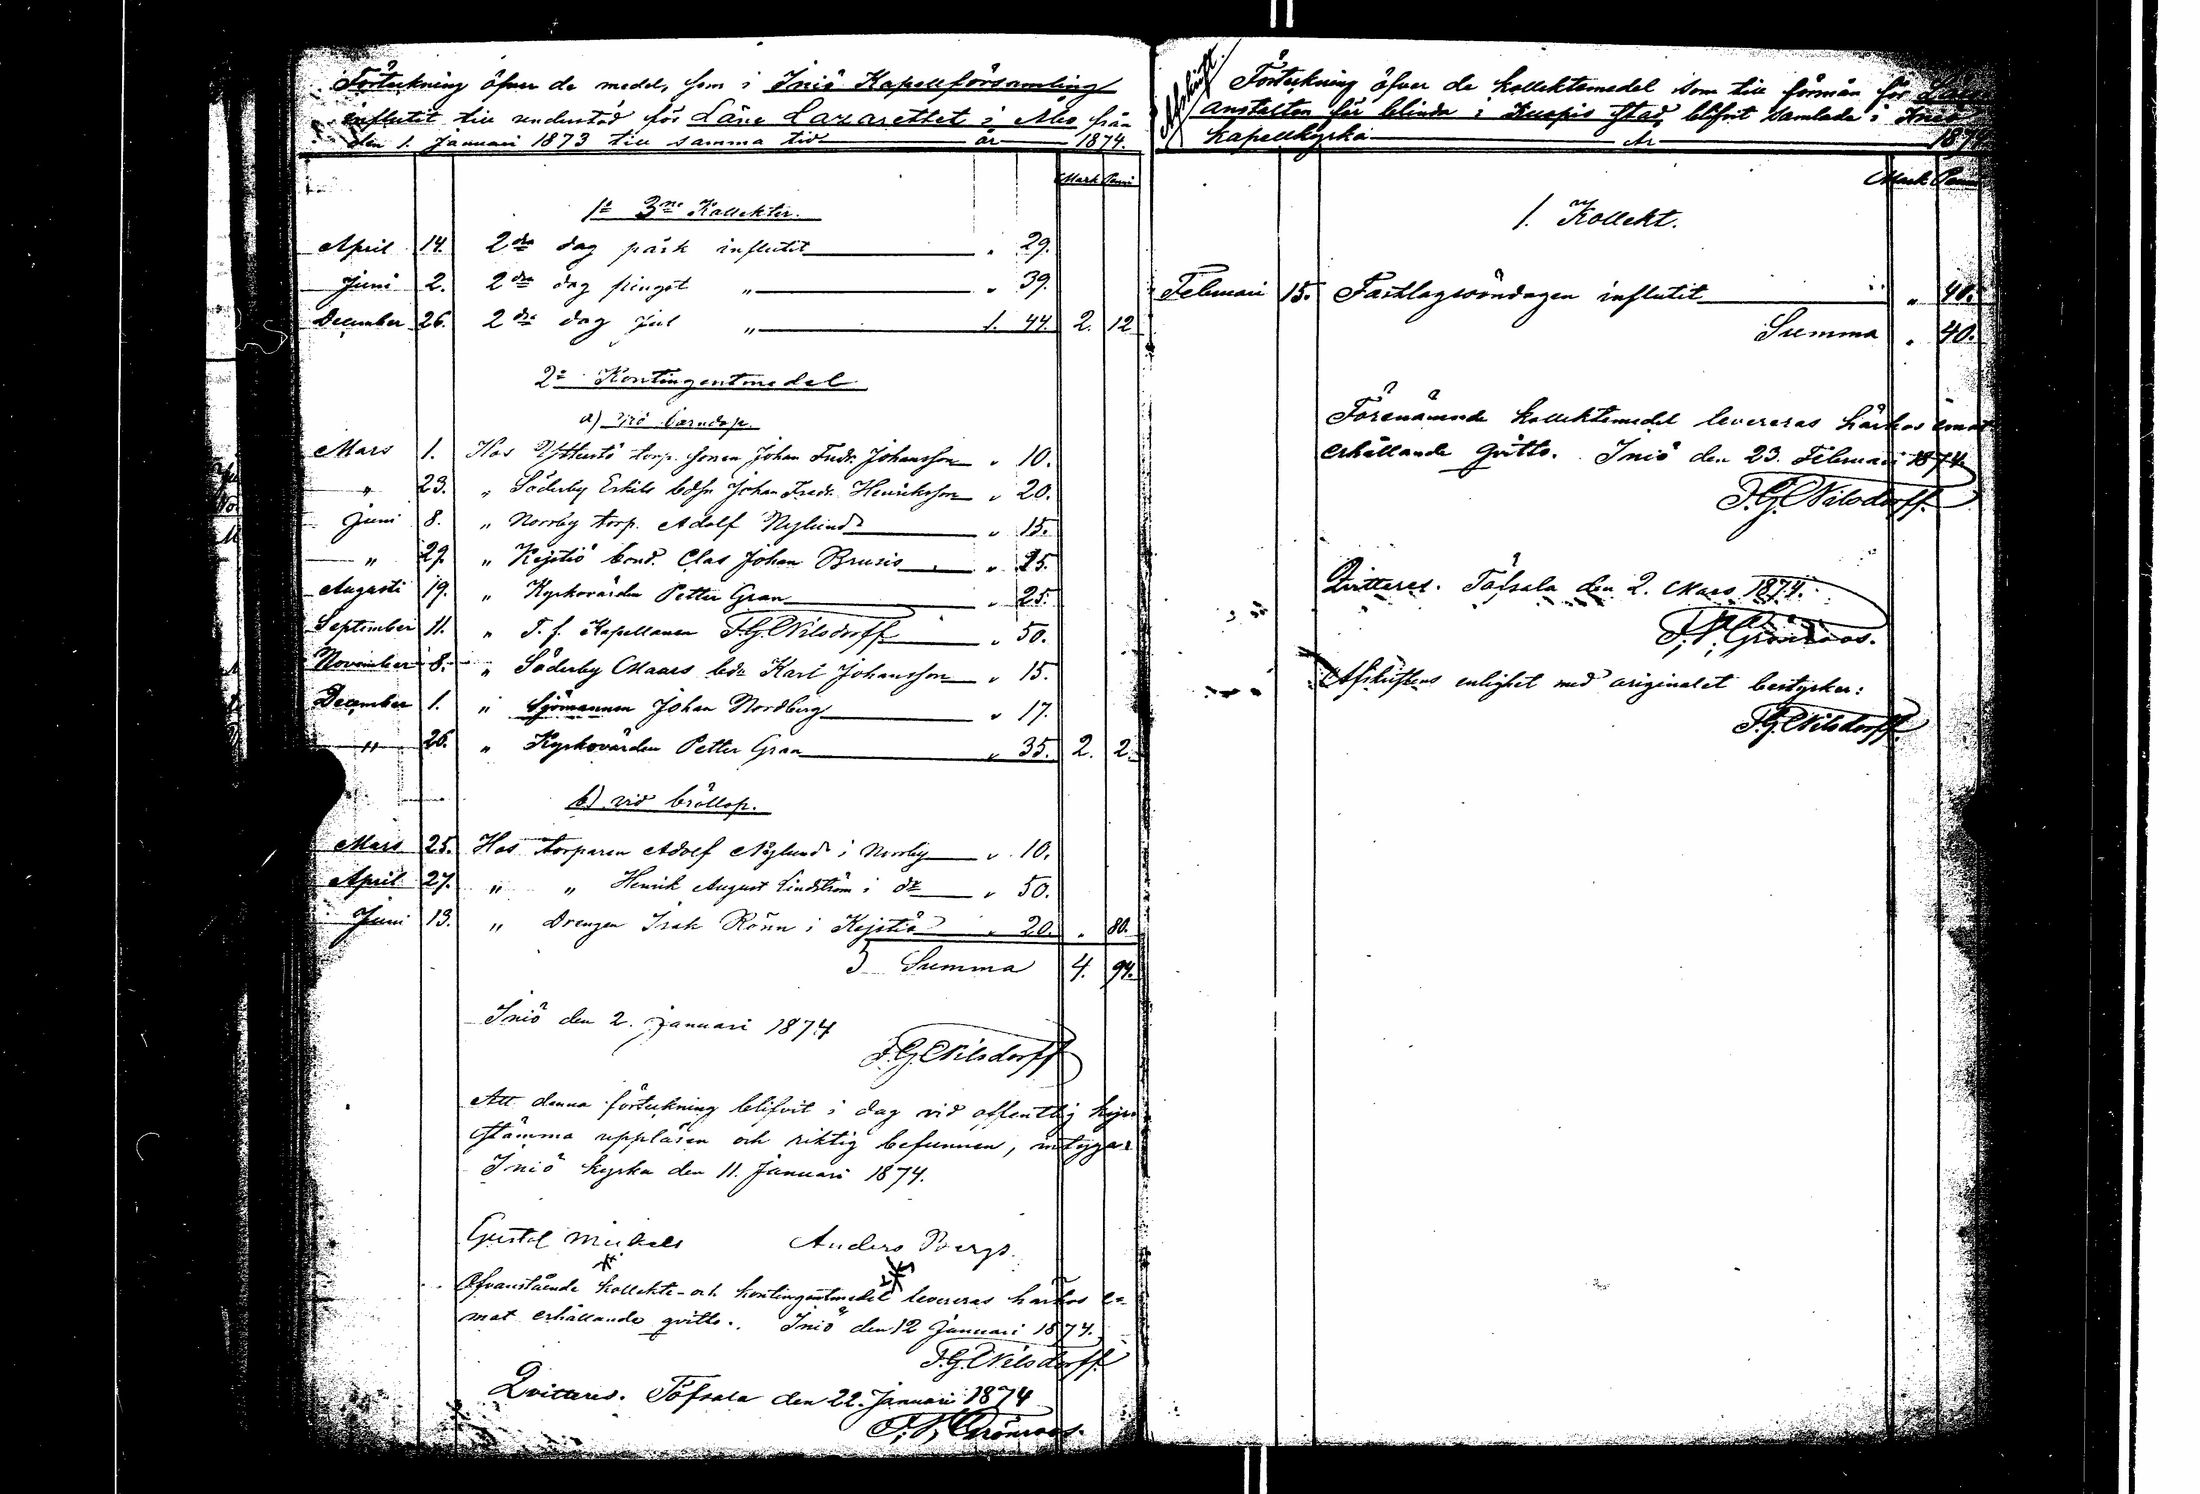 Förteckning öfver de medel, som i Iniö Kapellförsamling
influtit till understöd för Läns Lazarettet i Åbo från
den 1. Januari 1873 till samma tid år 1874.
Mark Penni
1o 3ne Kollekter.
April 14. 2dra dag påsk influtit " 29.
Juni 2. 2dra dag pingst " " 39.
December 26. 2dra dag jul " 1. 44. 2. 12
2o Kontingentmedel
a) vid barndop.
Mars 1. Hos torp. sonen Johan Fredr. Johansson " 10.
" 23. " Söderby Erkils Johan Fredr. Henriksson " 20.
Juni 8. " Norrby torp. Adolf Nylund " 15.
" 29. " Kejstiö bond. Clas Johan Brusis " 25.
Augusti 19. " Kyrkovärden Petter Gran " 25.
September 11. " T. f. Kapellanen F. G. Nilsdorff " 50.
November 8. " Söderby Maars Karl Johansson " 15.
December 1. " Sjömannen Johan Nordberg " 17.
" 26. " Kyrkovärden Petter Gran " 35. 2. 2.
b) vid bröllop.
Mars 25. Hos torparen Adolf Nylund i Norrby " 10.
April 27. " " Henrik August Lindström i do " 50.
Juni 13. " Drengen Isak Rönn i Kejstiö " 20. " 80.
Summa 4. 94.
Iniö den 2. Januari 1874
F. G. Nilsdorff
Att denna förteckning blifvit i dag vid offentlig
stämma uppläsen och riktig befunnen, intyga:
Iniö kyrka den 11. Januari 1874.
Gustaf Mickels Anders Bergs.
Ofvanstående kollekts- och kontingentmedel levereras härhos e-
mot erhållande qvitto. Iniö den 12 Januari 1874.
F. G. Nilsdorff
Qvitteras. Töfsala den 22. Januari 1874
F. W. Grönroos.
Afskrift.
Förteckning öfver de kollektsmedel som till förmån för
anstalten för blinda i Kuopio stad, blifvit samlade i Iniö
Kapellkyrka År 1874
Mark Penni
1. Kollekt.
Februari 15. Fastlagssöndagen influtit " 40.
Summa " 40.
Förenämnde kollektsmedel levereras härhos emot
erhållande qvitto. Iniö den 23. Februari 1874
F. G. Nilsdorff.
Qvitteras. Töfsala den 2. Mars 1874.
F. W. Grönroos.
Afskriftens enlighet med originalet bestyrker:
F. G. Nilsdorff.